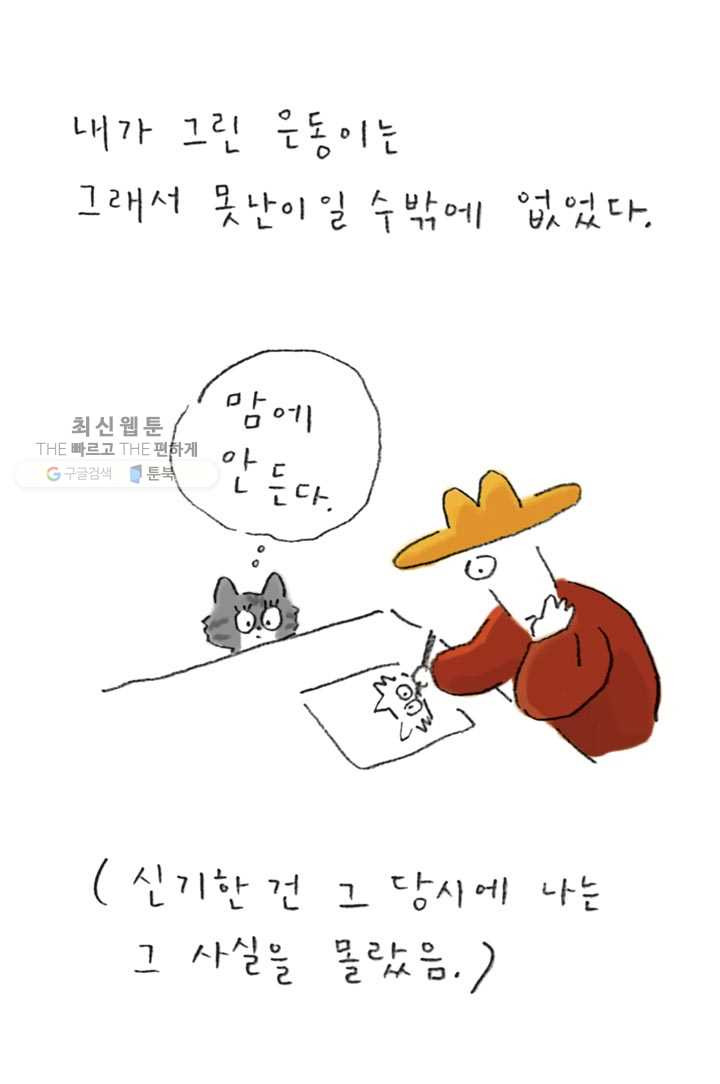 내가 그린 은동이는
그래서 못난이일 수밖에 없었다.
맘에
안 든다.
최신웹툰
THE 빠르고 THE 편하게
구글검색 툰북
(신기한 건 그 당시에 나는
그 사실을 몰랐음.)